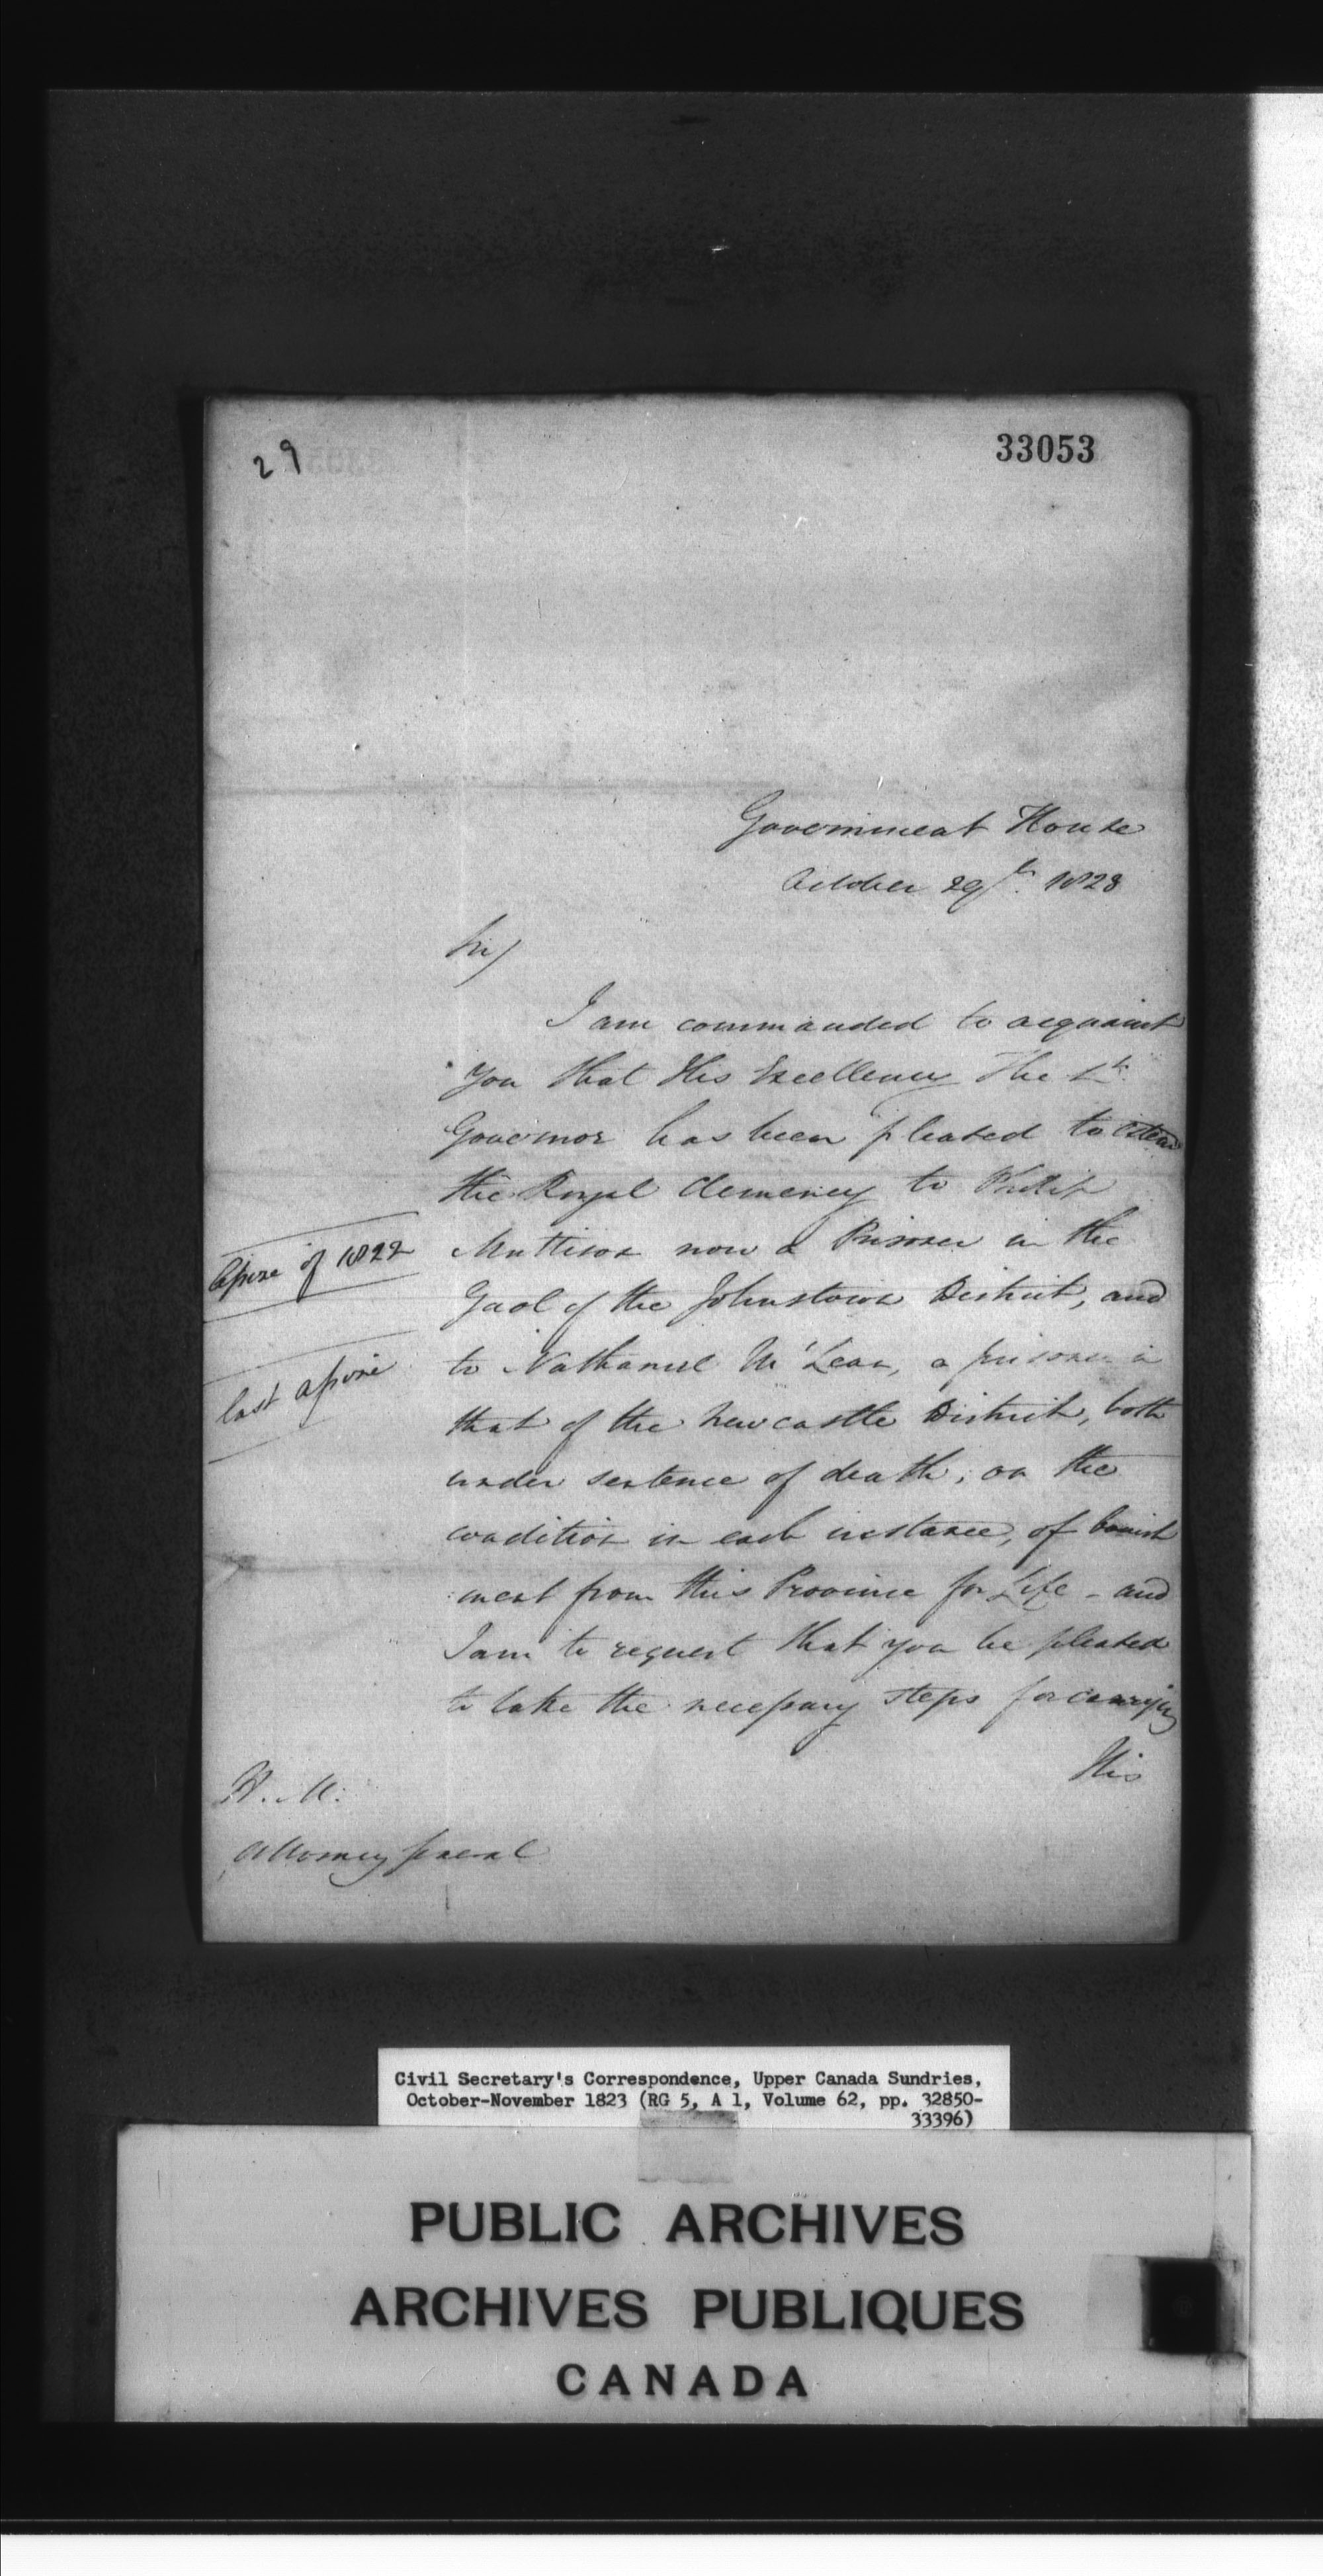 29
33053
Government House
October 29th. 1823
Sir,
I am commanded to acquaint
you that His Excellency The Lt.
Governor has been pleased to extend
the Royal Clemency to Philip
Assize of 1822
Mattison now a Prisoner in the
Gaol of the Johnstown District, and
last assize
to Nathaniel McLean, a prisoner in
that of the Newcastle District, both
under sentence of death, on the
condition in each instance, of banish
ment from this Province for Life - and
I am to request that you be pleased
to take the necessary steps for carrying
His
Attorney General
Civil Secretary's Correspondence, Upper Canada Sundries,
October-November 1823 (RG 5, A 1, Volume 62, pp. 32850-
33396)
PUBLIC ARCHIVES
ARCHIVES PUBLIQUES
CANADA